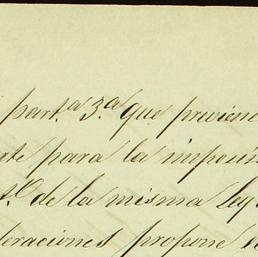 part.a 3.a que previene
para la imposi
de la misma Ley
eraciones propone